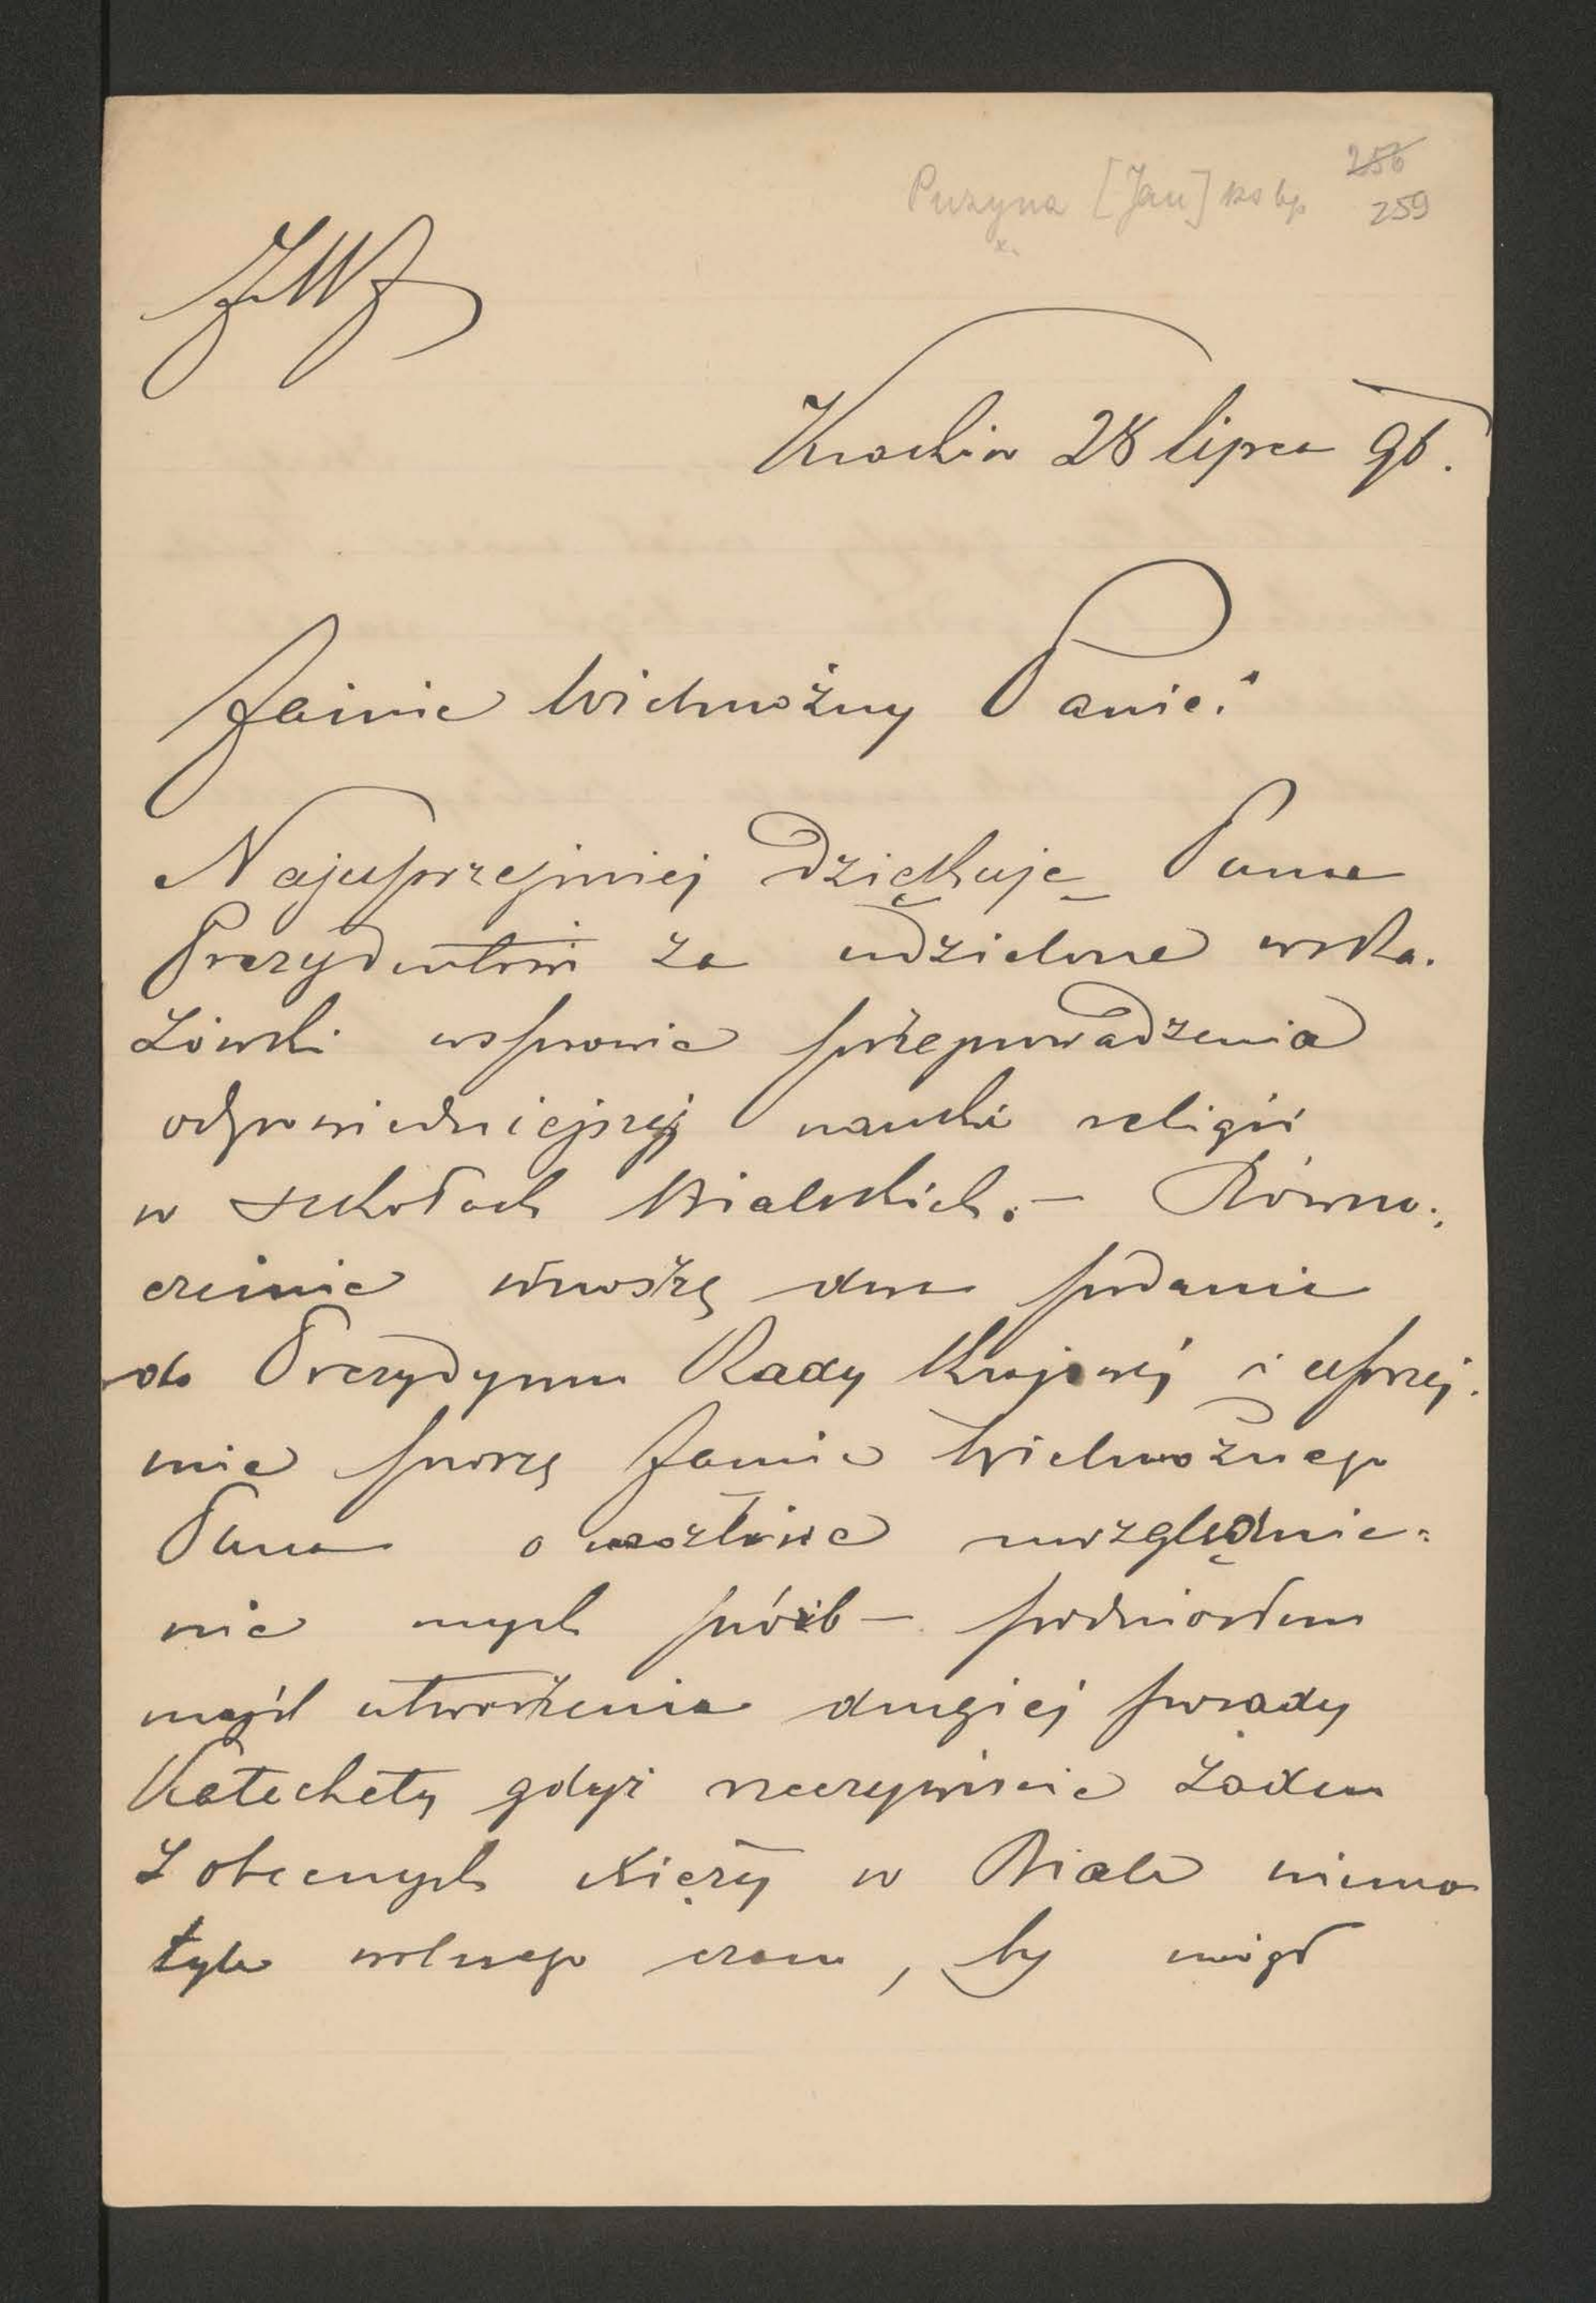 Puzyna [Jan] ks bp 256
x. 259
JWJ
Kraków 28 lipca 96.
Jaśnie Wielmożny Panie!
Najuprzejmiej dziękuję Panu
Prezydentowi za udzielone wska-
zówki w sprawie przeprowadzenia
odpowiedniejszej nauki religii
w szkołach Bialskich. – Równo-
cześnie wnoszę dwa podania
do Prezydyum Rady Krajowej i uprzej-
mie proszę Jaśnie Wielmożnego
Pana o możliwe uwzględnie-
nie mych próśb – podniosłem
myśl utworzenia drugiej posady
Katechety gdyż rzeczywiście żaden
z obecnych księży w Biale niema
tyle wolnego czasu, by mógł